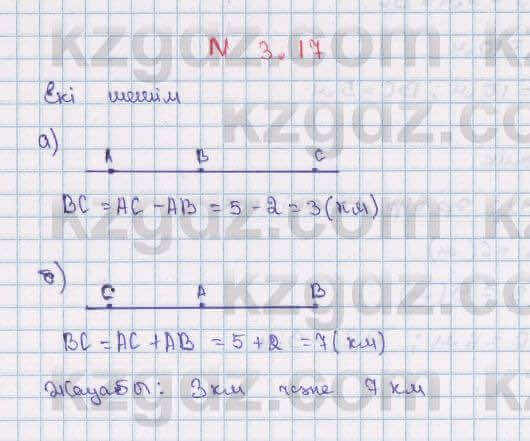 kzgdz.com
N 3.17
Екі шешім
а)
A B C
BC = AC - AB = 5 - 2 = 3 (км)
б)
C A B
BC = AC + AB = 5 + 2 = 7 (км)
Жауабы: 3 км және 7 км